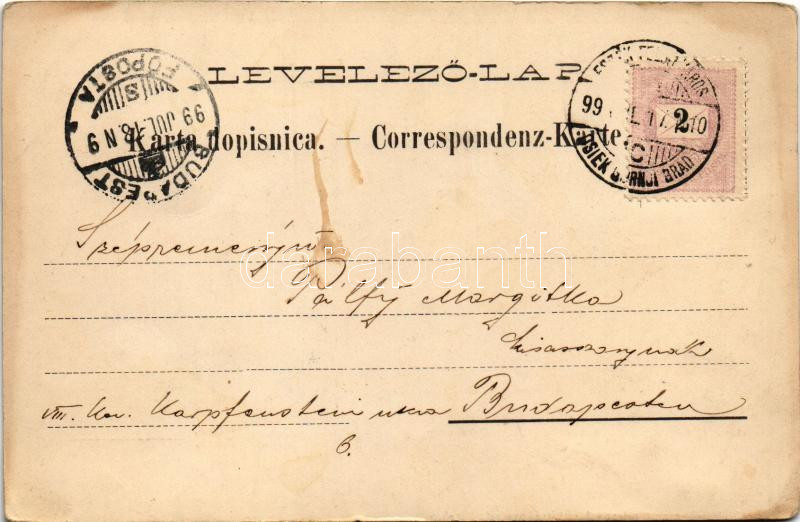 LEVELEZŐ-LAP
Karta dopisnica. — Correspondenz-Karte.
BUDAPEST
FŐPOSTA
99 JUL. 18. N 9
S
ESZÉK FELSŐVÁROS
99 JUL 17 10
C
OSIEK GORNJI GRAD
2
Szépreményű
Pálffy Margitka
kisasszonynak
VIII. Ker. Karpfenstein utca Budapesten
6.
darabanth